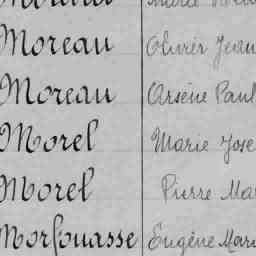 Moreau Olivier Jean
Moreau Arsène Paul
Morel Marie Jose
Morel Pierre Ma
Morfouasse Eugène Mari